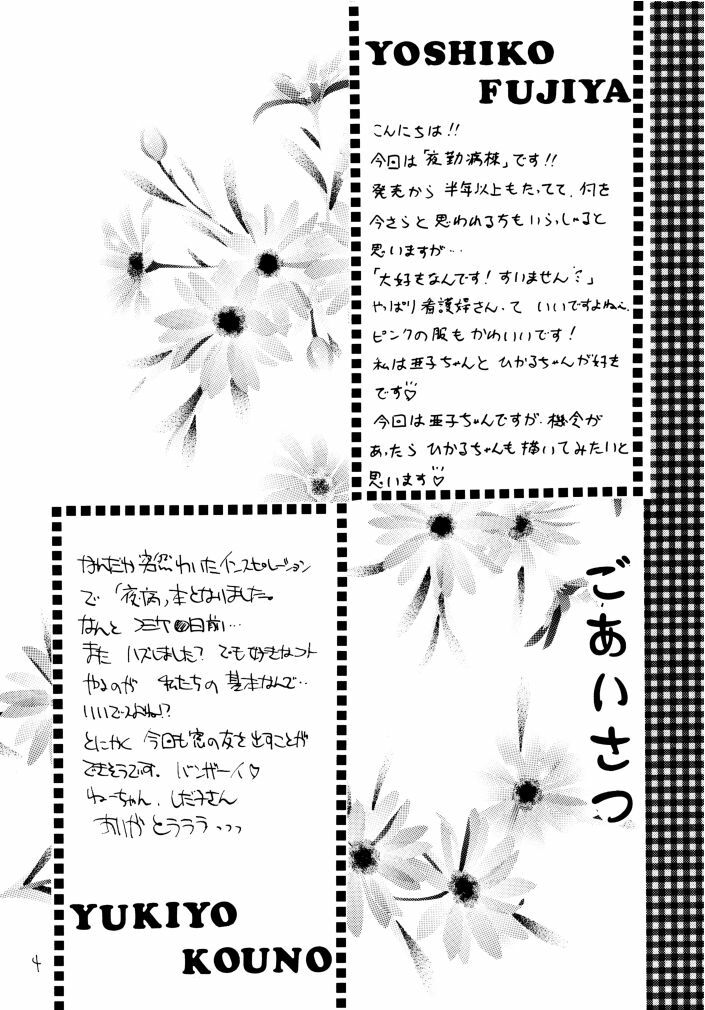 YOSHIKO
FUJIYA
こんにちは!!
今回は「夜勤病棟」です!!
発売から 半年以上もたってて、何を
今さらと思われる方もいらっしゃると
思いますが…
「大好きなんです!すいません」
やっぱり看護婦さんって いいですよねぇ、
ピンクの服も かわいいです!
私は亜子ちゃんと ひかるちゃんが好き
です♡
今回は亜子ちゃんですが、機会が
あったら ひかるちゃんも描いてみたいと
思います♡
ごあいさつ
なんだか突然わいたインスピレーション
で 「夜病」本となりました。
なんと 日前…
また ハズしました? でも好きなコト
やるのが 私たちの 基本なんで‥
いいですよね!?
とにかく 今回も窓の友を出すことが
できそうです。 バンザーイ♡
ねーちゃん、しだ子さん
ありがとうううう、、、
YUKIYO
KOUNO
4